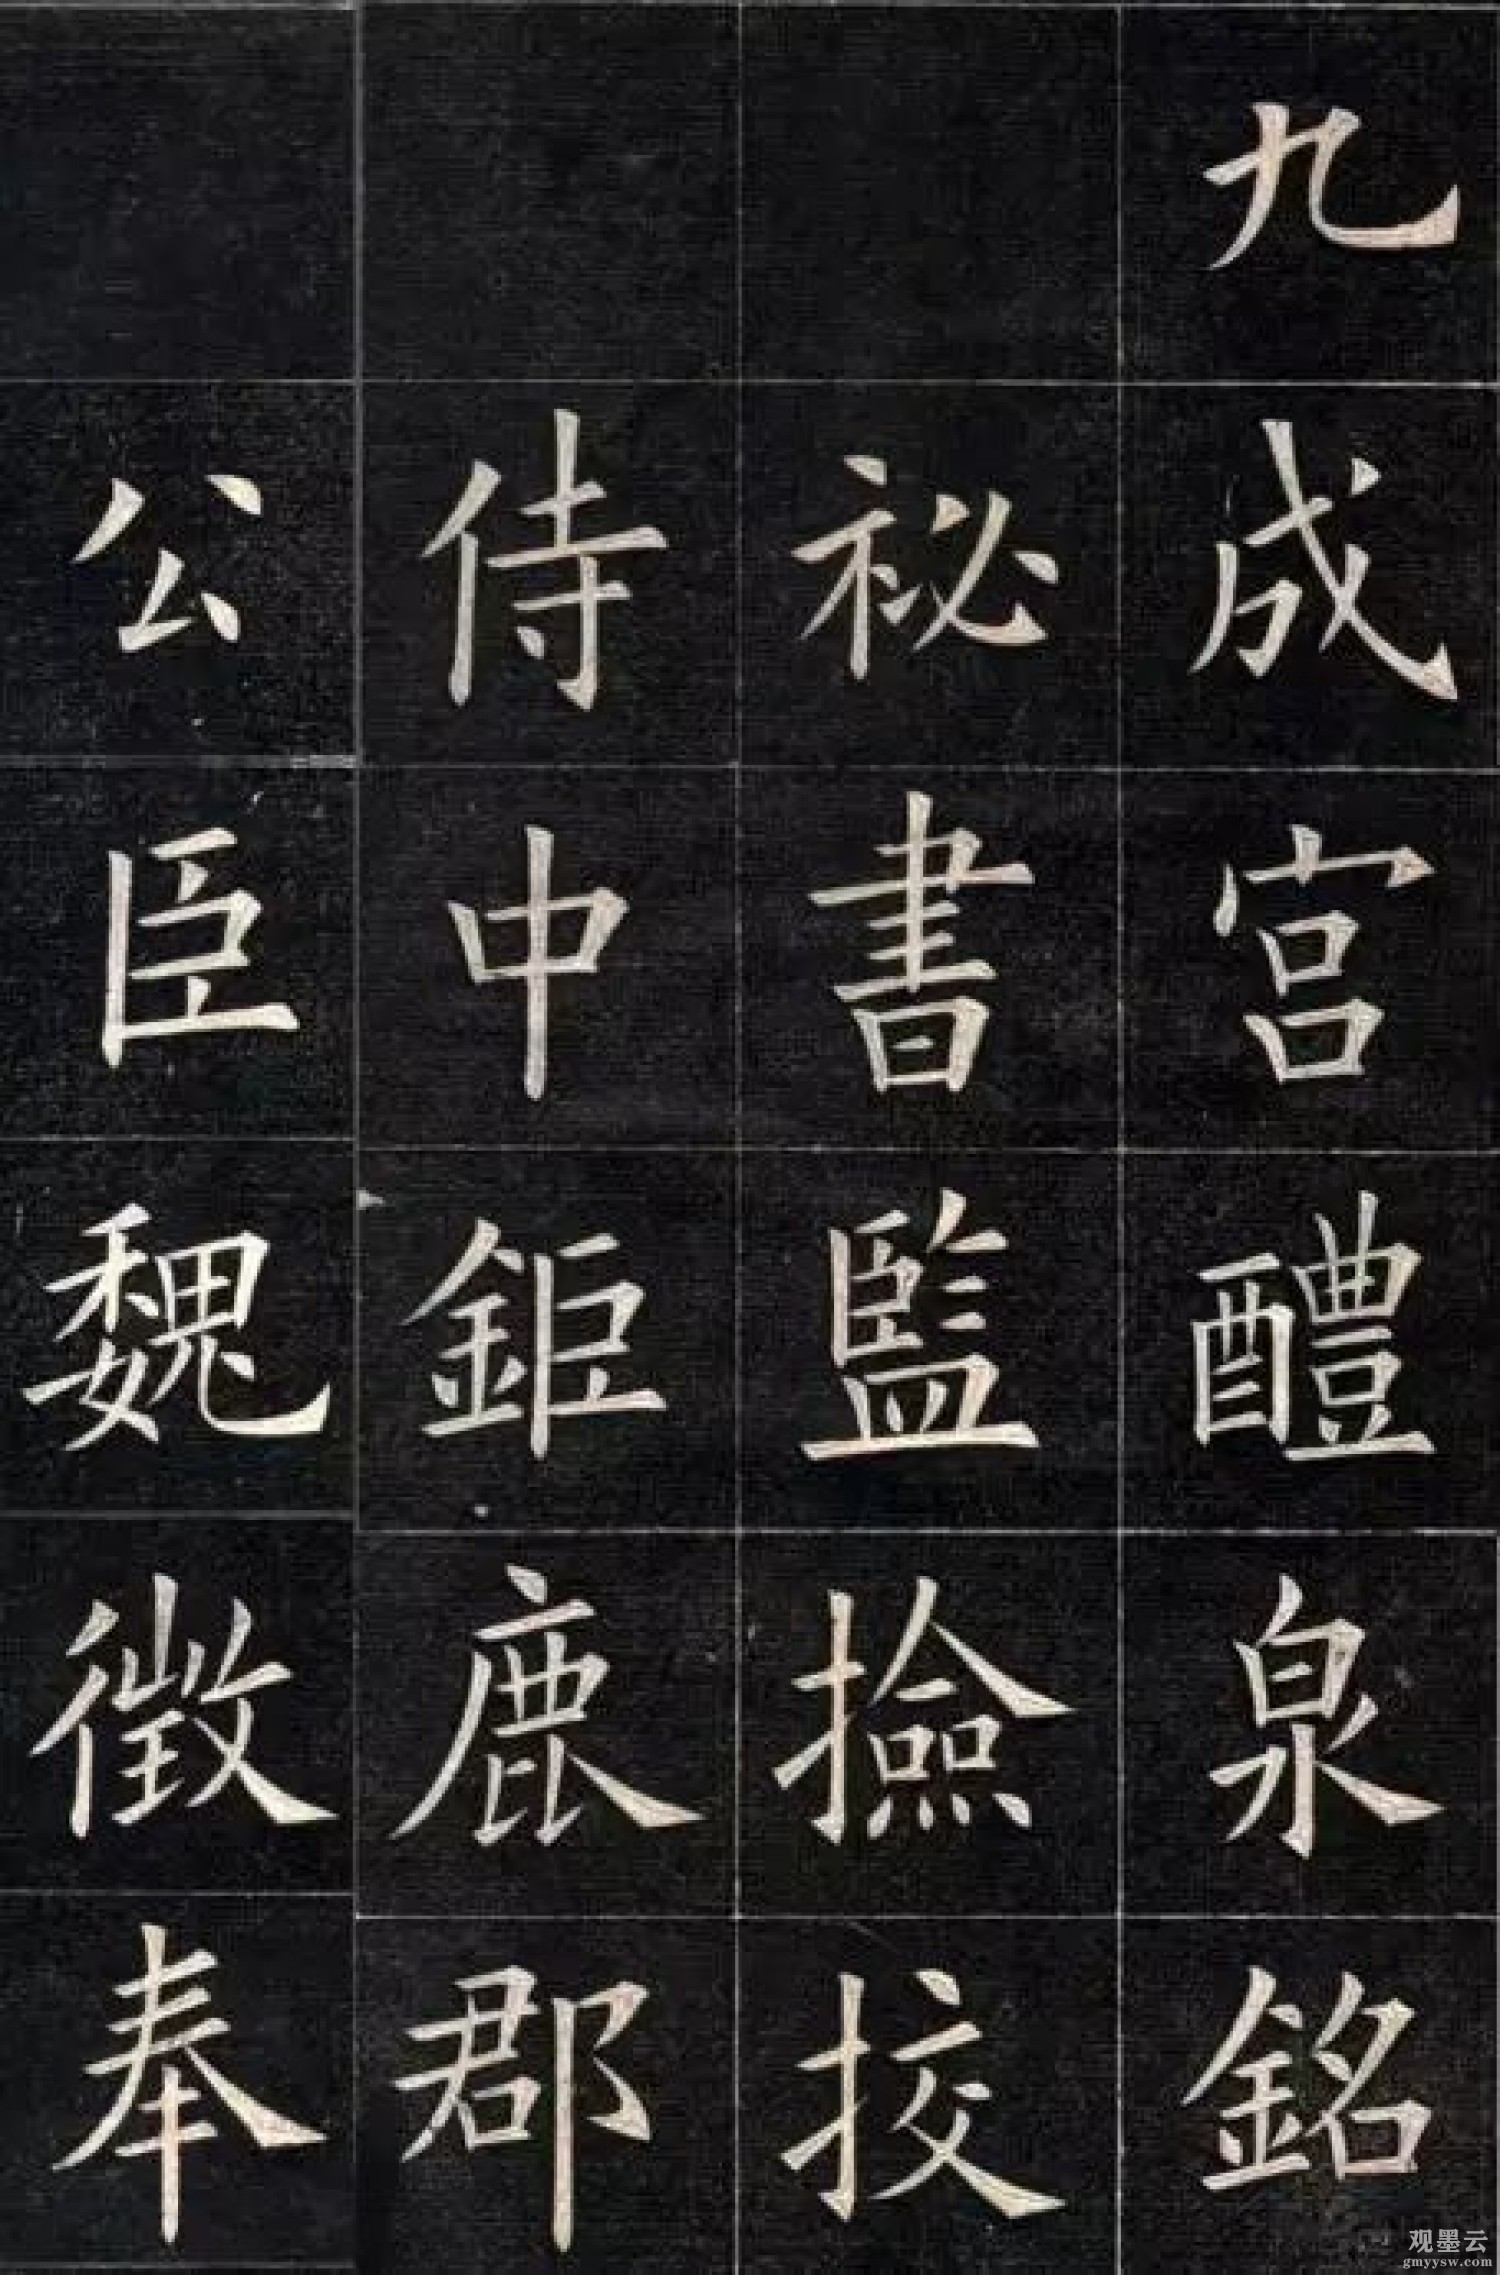 九成宮醴泉銘
祕書監撿挍
侍中鉅鹿郡
公臣魏徵奉
观墨云
gmyysw.com